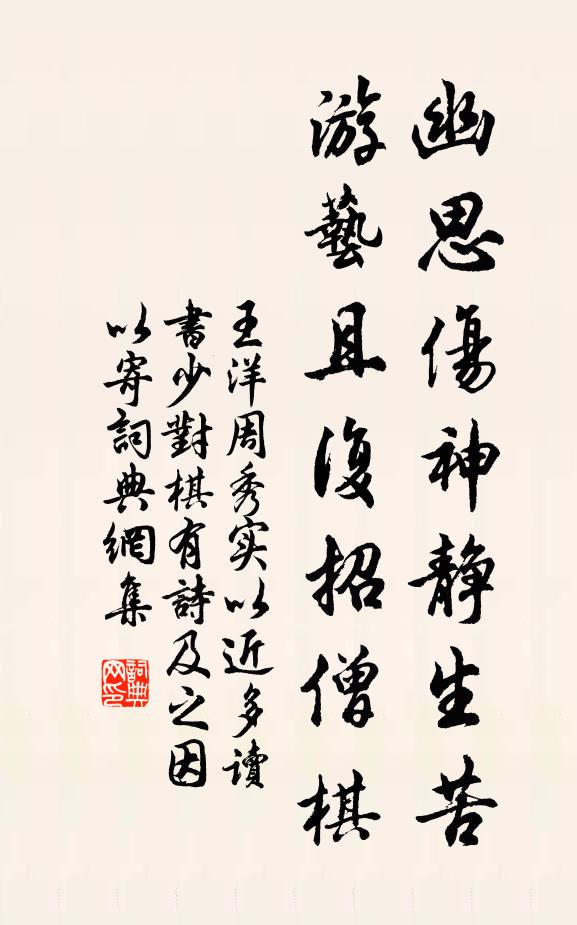 幽思傷神静生苦
游藝且復招僧棋
王洋周秀实以近多讀
書少對棋有詩及之因
以寄詞典網集
詞典
网印